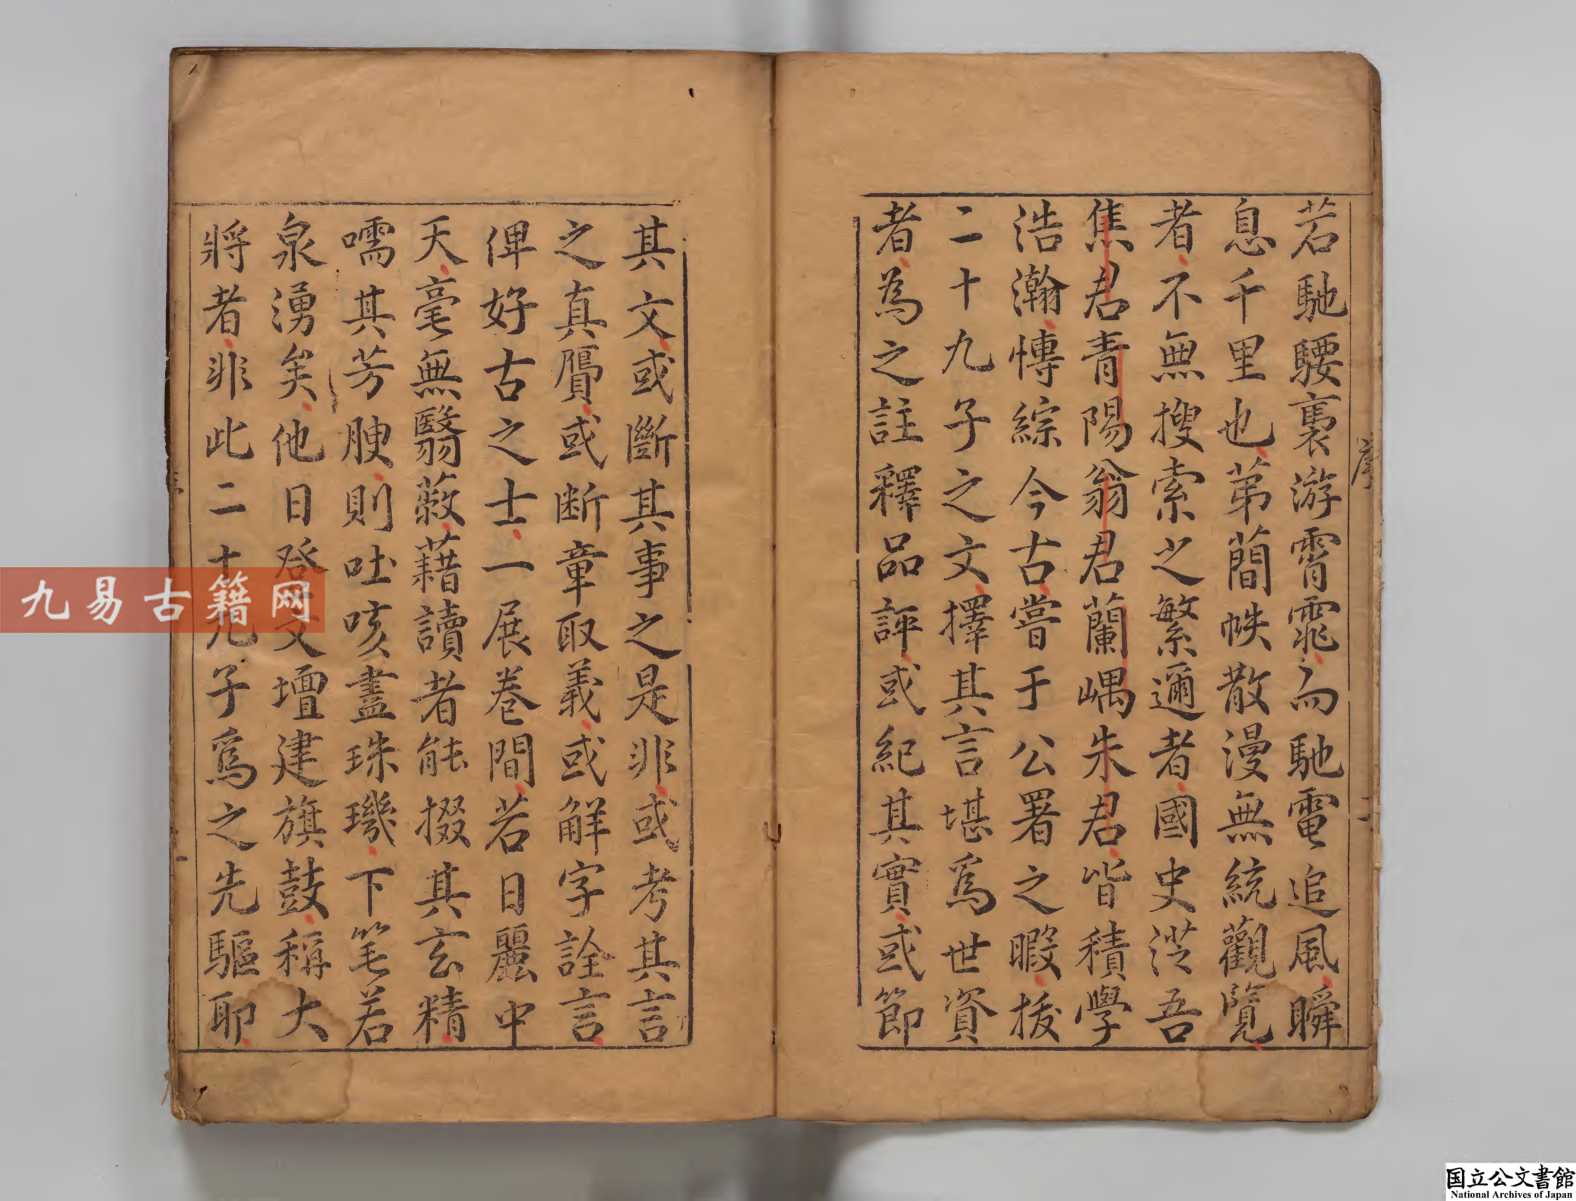 若馳騕裹游霄霏而馳電追風瞬
息千里也第簡帙散漫無統觀覽
者不無搜索之繁邇者國史漪吾
焦君青陽翁君蘭嵎朱君皆積學
浩瀚慱綜今古嘗于公署之暇拔
二十九子之文擇其言堪爲世資
者為之註釋品評或紀其實或節
序
二
其文或斷其事之是非或考其言
之真贋或断章取義或解字詮言
俾好古之士一展卷間若日麗中
天毫無翳蔽藉讀者能掇其玄精
嚅其芳腴則吐咳盡珠璣下笔若
泉湧矣他日登文壇建旗鼓稱大
將者非此二十九子爲之先驅耶
九易古籍网
国立公文書館
National Archives of Japan